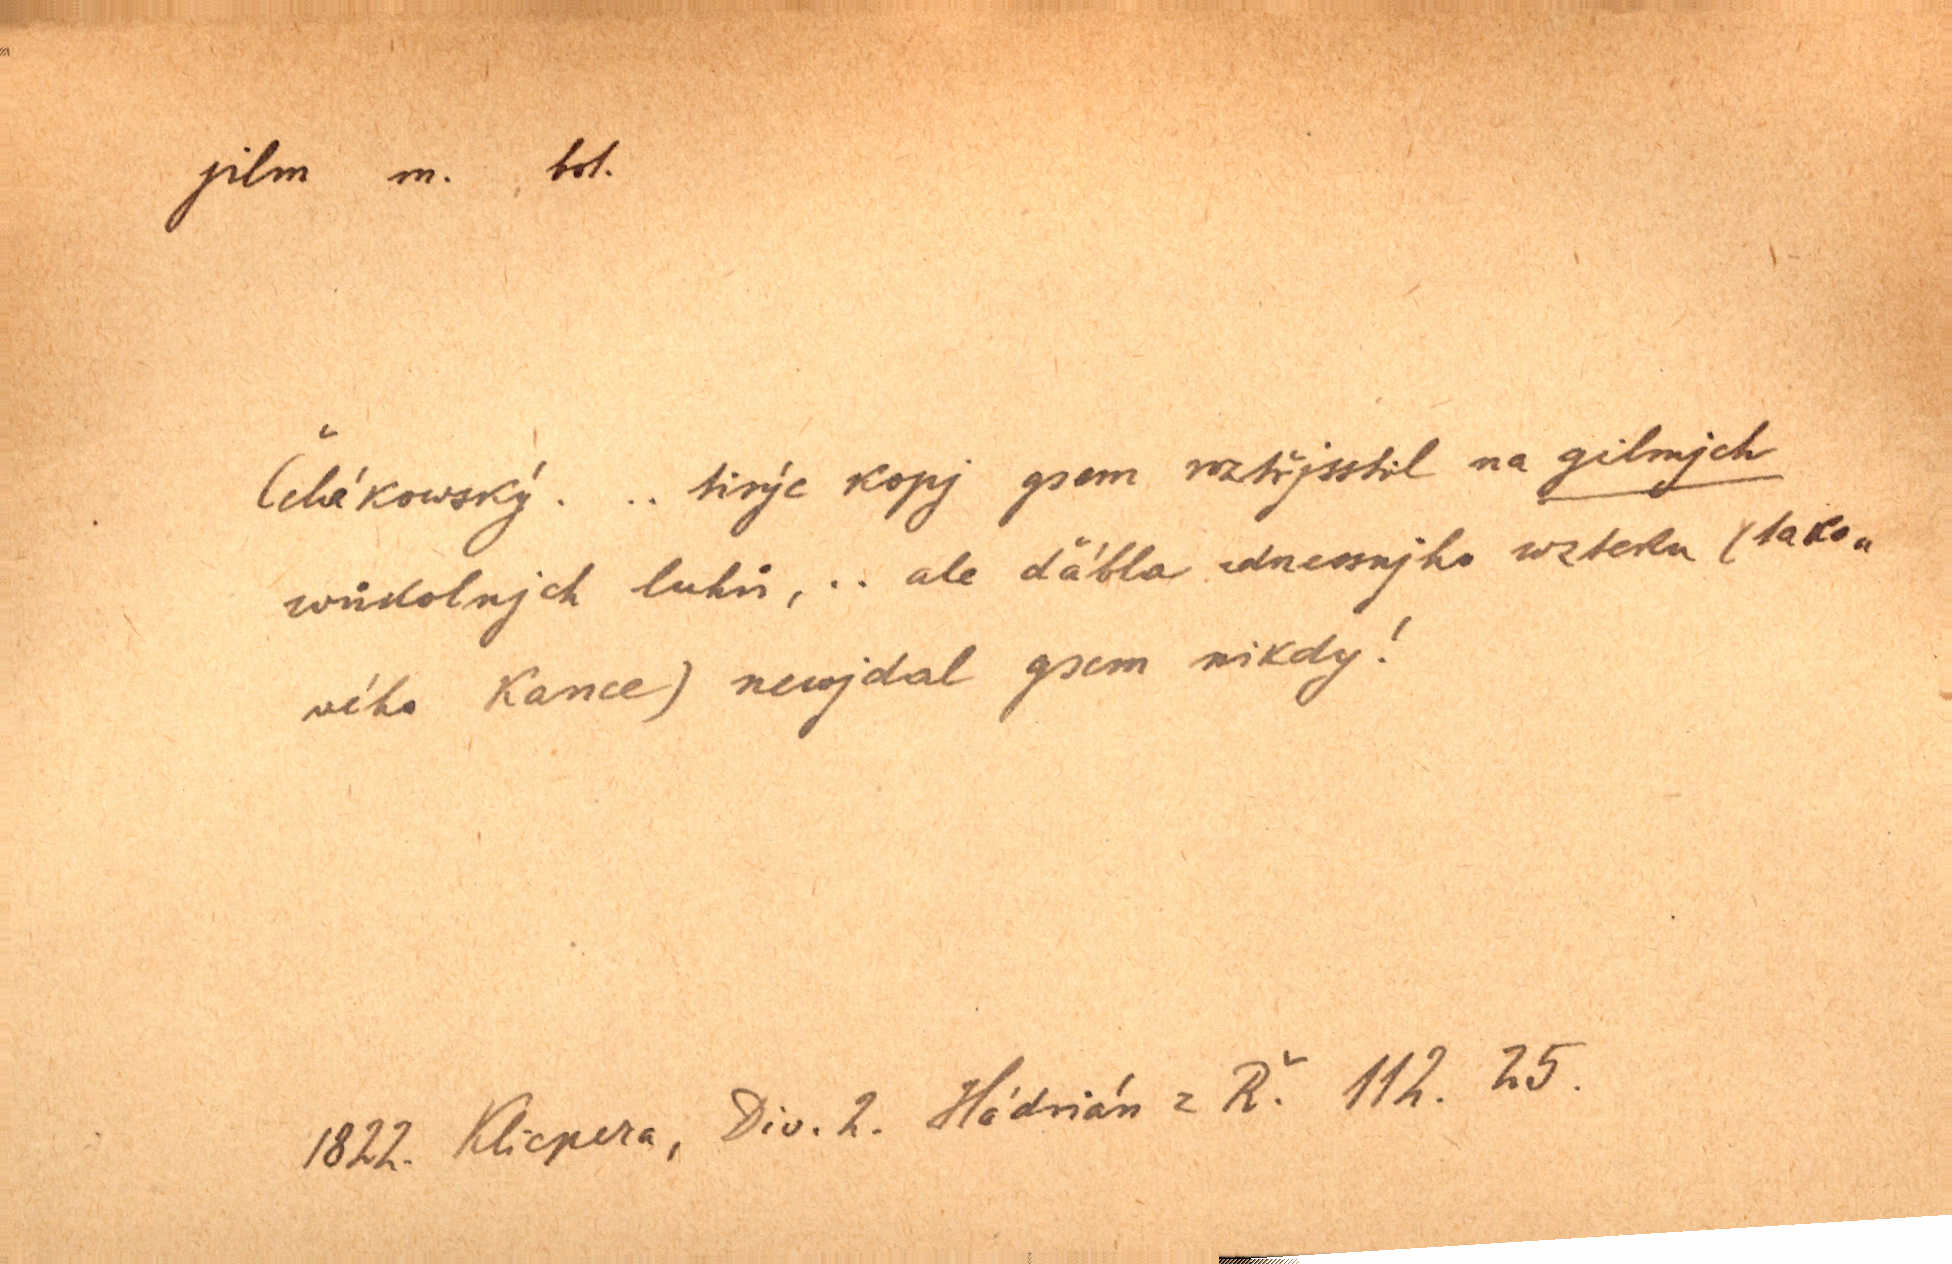 jilm m. bot.
Čchákowský. .. tisýc kopj gsem roztřjsstil na gilmjch
wůkolnjch luhů, .. ale ďábla dnessnjho wzteku (tako„
wého Kance) newjdal gsem nikdy!
1822. Klicpera, Div. 2. Hádrián z Ř. 112. 25.